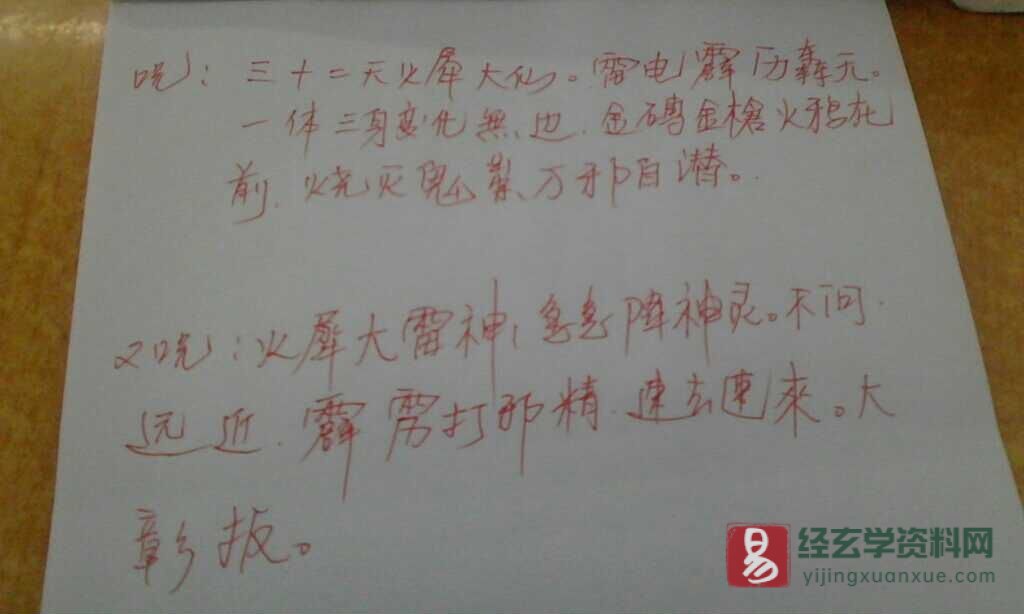 咒：三十二天火犀大仙。雷电霹历轰元。
一体三身变化無边.金磚金槍火鸦在
前.烧灭鬼輩、万邪自潜。
又咒：火犀大雷神，急急降神灵。不问
远近.霹雳打邪精.速去速來。大
彰报。
易
经玄学资料网
yijingxuanxue.com